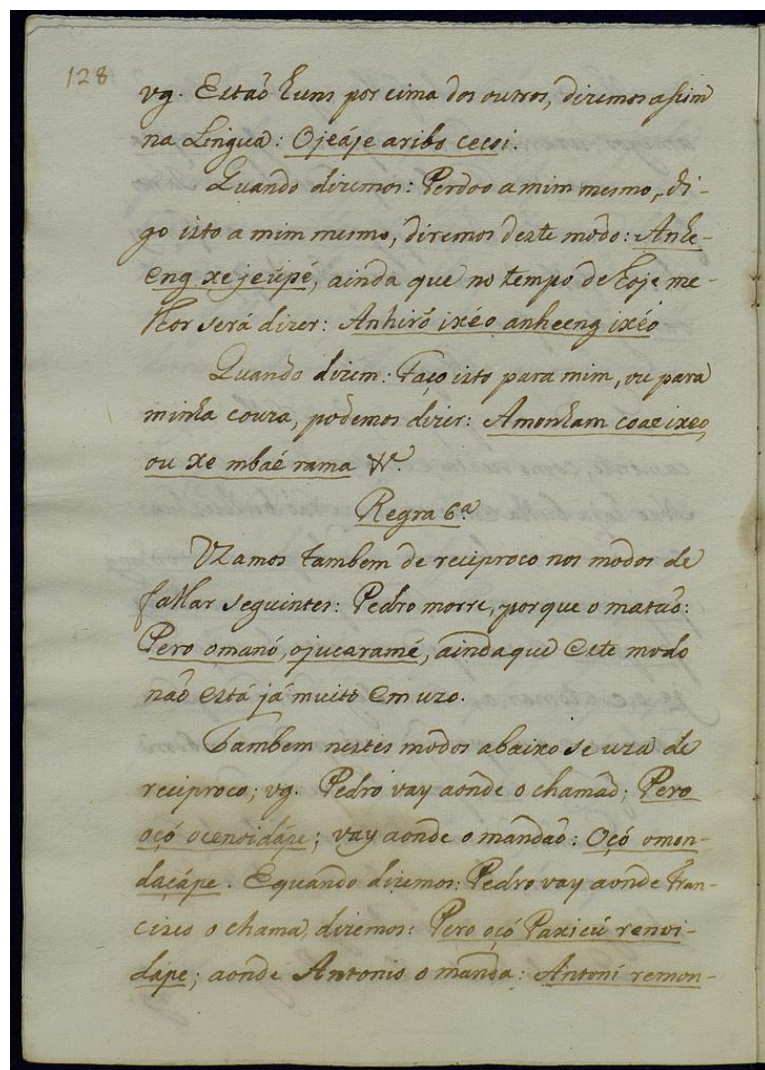 128
vg. Estaõ huns por cima dos outros, diremos assim
na Lingua: Ojeáje aribo cecoi.
Quando dizemos: Perdoo a mim mesmo, di-
go isto a mim mesmo, diremos deste modo: Anhe-
eng xe jeupé, ainda que no tempo de hoje me-
lhor será dizer: Anhirõ ixéo anheeng ixéo
Quando dizem: Faço isto para mim, ou para
minha couza, podemos dizer: Amonham coae ixeo,
ou xe mbaé rama
Regra 6ª
Uzamos tambem de reciproco nos modos de
fallar seguintes: Pedro morre, porque o mataõ:
Pero omanó, ojucaramé, aindaque este modo
naõ está já muito em uzo.
Tambem nestes modos abaixo se uza de
reciproco; vg. Pedro vay aonde o chamaõ; Pero
oçó ocenoidápe; vay aonde o mandaõ: Oçó omon-
daçápe. E quando dizemos: Pedro vay aonde Fran-
cisco o chama, diremos: Pero oçó Paxicú renoi-
dápe; aonde Antonio o manda: Antoni remon-